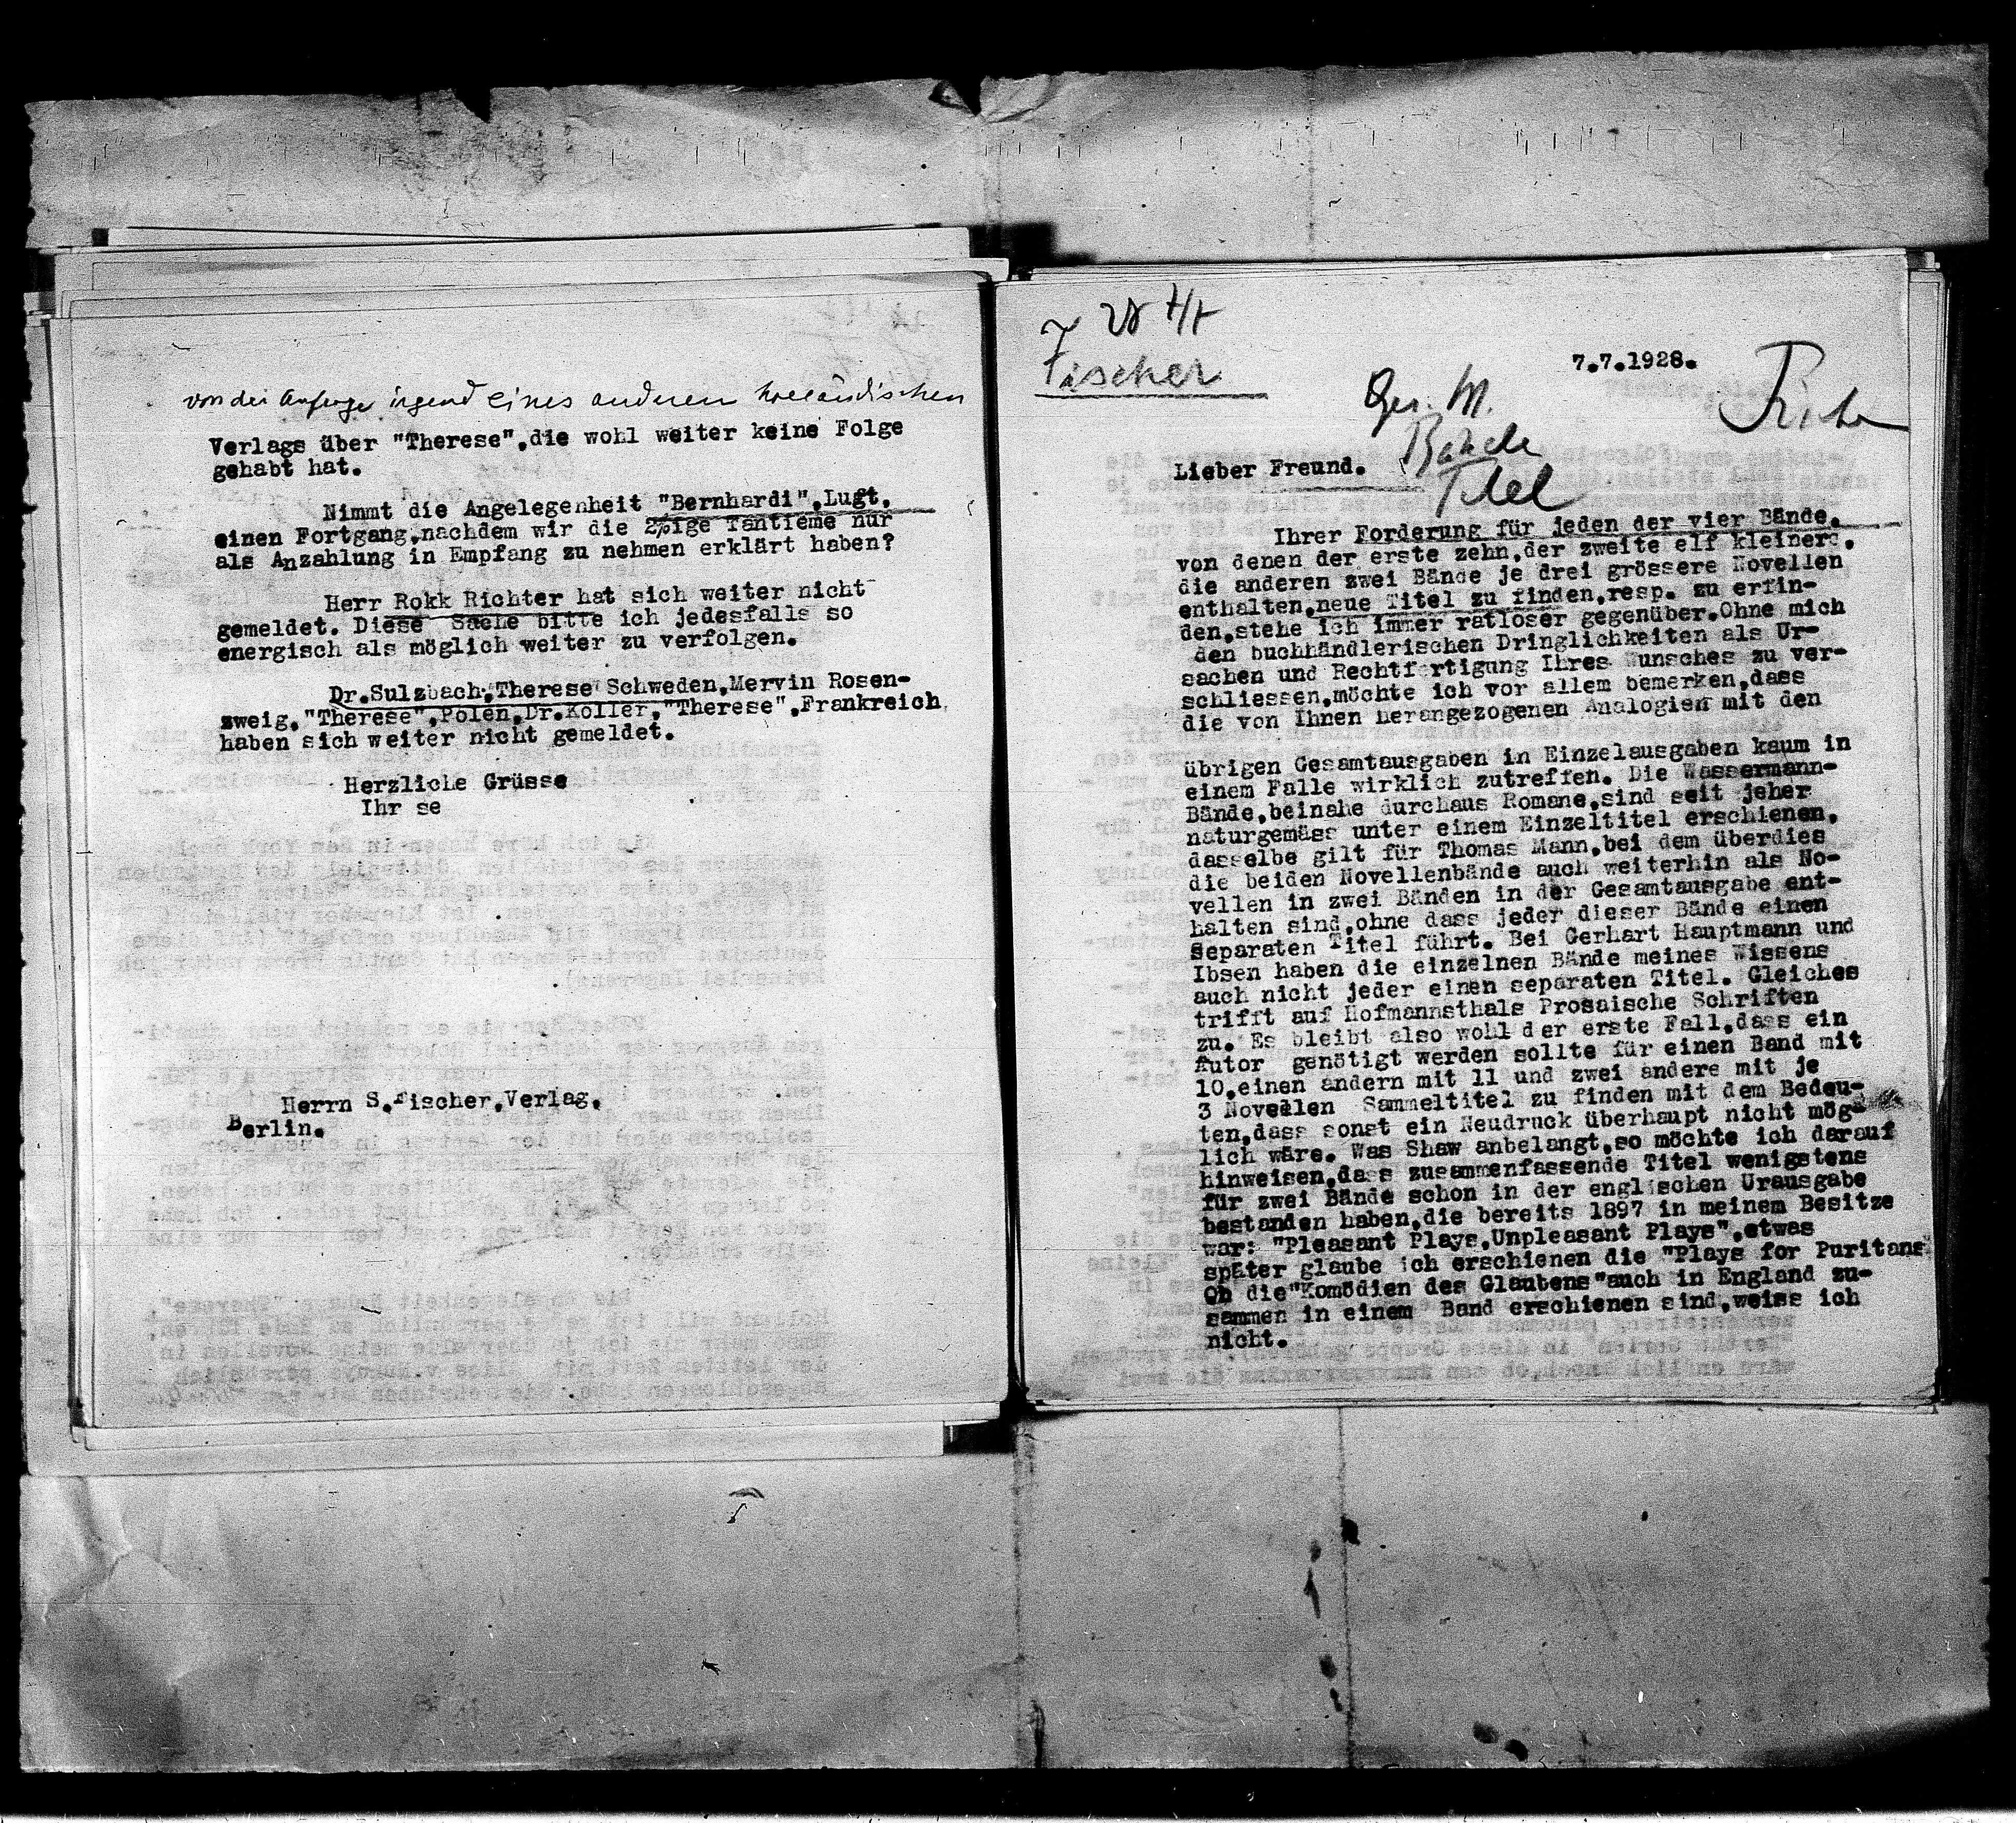 von der Anfrage irgend eines anderen holländischen
Verlags über "Therese",die wohl weiter keine Folge
gehabt hat.
Nimmt die Angelegenheit "Bernhardi",Lugt,
einen Fortgang,nachdem wir die 2%ige Tantieme nur
als Anzahlung in Empfang zu nehmen erklärt haben?
Herr Rokk Richter hat sich weiter nicht
gemeldet. Diese Sache bitte ich jedesfalls so
energisch als möglich weiter zu verfolgen.
Dr.Sulzbach,"Therese"Schweden,Mervin Rosen-
zweig,"Therese",Polen,Dr.Koller,"Therese",Frankreich,
haben sich weiter nicht gemeldet.
Herzliche Grüsse
Ihr se
Herrn S.Fischer,Verlag,
Berlin.
Fischer
7.7.1928.
Ges. W.
Bände
Titel
Lieber Freund.
Ihrer Forderung für jeden der vier Bände,
von denen der erste zehn,der zweite elf kleinere,
die anderen zwei Bände je drei grössere Novellen
enthalten,neue Titel zu finden,resp. zu erfin-
den,stehe ich immer ratloser gegenüber.Ohne mich
den buchhändlerischen Dringlichkeiten als Ur-
sachen und Rechtfertigung Ihres Wunsches zu ver-
schliessen,möchte ich vor allem bemerken,dass
die von Ihnen herangezogenen Analogien mit den
übrigen Gesamtausgaben in Einzelausgaben kaum in
einem Falle wirklich zutreffen. Die Wassermann-
Bände,beinahe durchaus Romane,sind seit jeher
naturgemäss unter einem Einzeltitel erschienen,
dasselbe gilt für Thomas Mann,bei dem überdies
die beiden Novellenbände auch weiterhin als No-
vellen in zwei Bänden in der Gesamtausgabe ent-
halten sind,ohne dass jeder dieser Bände einen
separaten Titel führt. Bei Gerhart Hauptmann und
Ibsen haben die einzelnen Bände meines Wissens
auch nicht jeder einen separaten Titel. Gleiches
trifft auf Hofmannsthals Prosaische Schriften
zu. Es bleibt also wohl der erste Fall,dass ein
Autor genötigt werden sollte für einen Band mit
10,einen andern mit 11 und zwei andere mit je
3 Novellen Sammeltitel zu finden mit dem Bedeu-
ten,dass sonst ein Neudruck überhaupt nicht mög-
lich wäre. Was Shaw anbelangt,so möchte ich darauf
hinweisen,dass zusammenfassende Titel wenigstens
für zwei Bände schon in der englischen Urausgabe
bestanden haben,die bereits 1897 in meinem Besitze
war: "Pleasant Plays,Unpleasant Plays",etwas
später glaube ich erschienen die "Plays for Puritans"
Ob die"Komödien des Glaubens"auch in England zu-
sammen in einem Band erschienen sind,weiss ich
nicht.